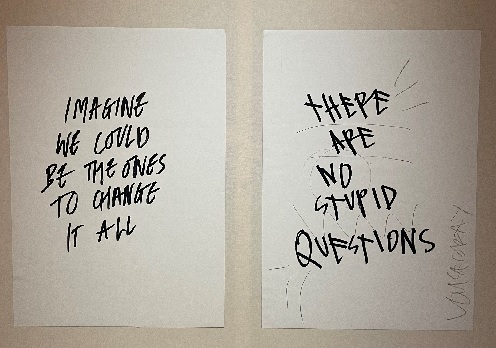 IMAGINE
WE COULD
BE THE ONES
TO CHANGE
IT ALL
THERE
ARE
NO
STUPID
QUESTIONS